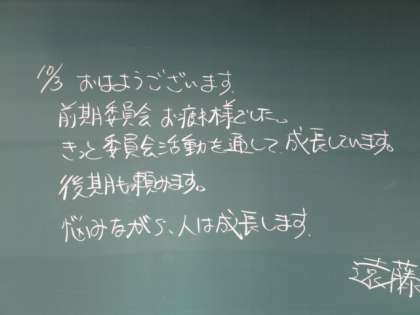 10/3 おはようございます。
前期委員会 お疲れ様でした。
きっと委員会活動を通して、成長しています。
後期も頼みます。
悩みながら、人は成長します。
遠藤